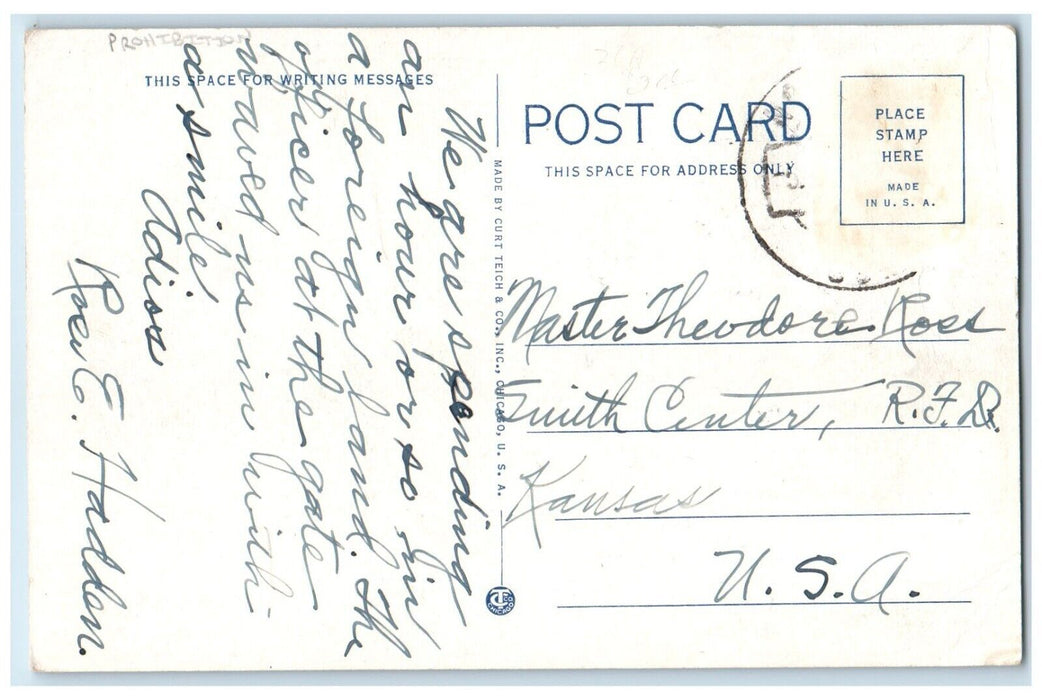 PROHIBITION
THIS SPACE FOR WRITING MESSAGES
We are spending
an hour or so in
a foreign land. The
officer at the gate
waved us in with
a smile.
Adios
Roe E. Haddon.
MADE BY CURT TEICH & CO., INC., CHICAGO, U. S. A.
POST CARD
THIS SPACE FOR ADDRESS ONLY
PLACE
STAMP
HERE
MADE
IN U. S. A.
Master Theodore Ross
Smith Center, R.F.D.
Kansas
U.S.A.